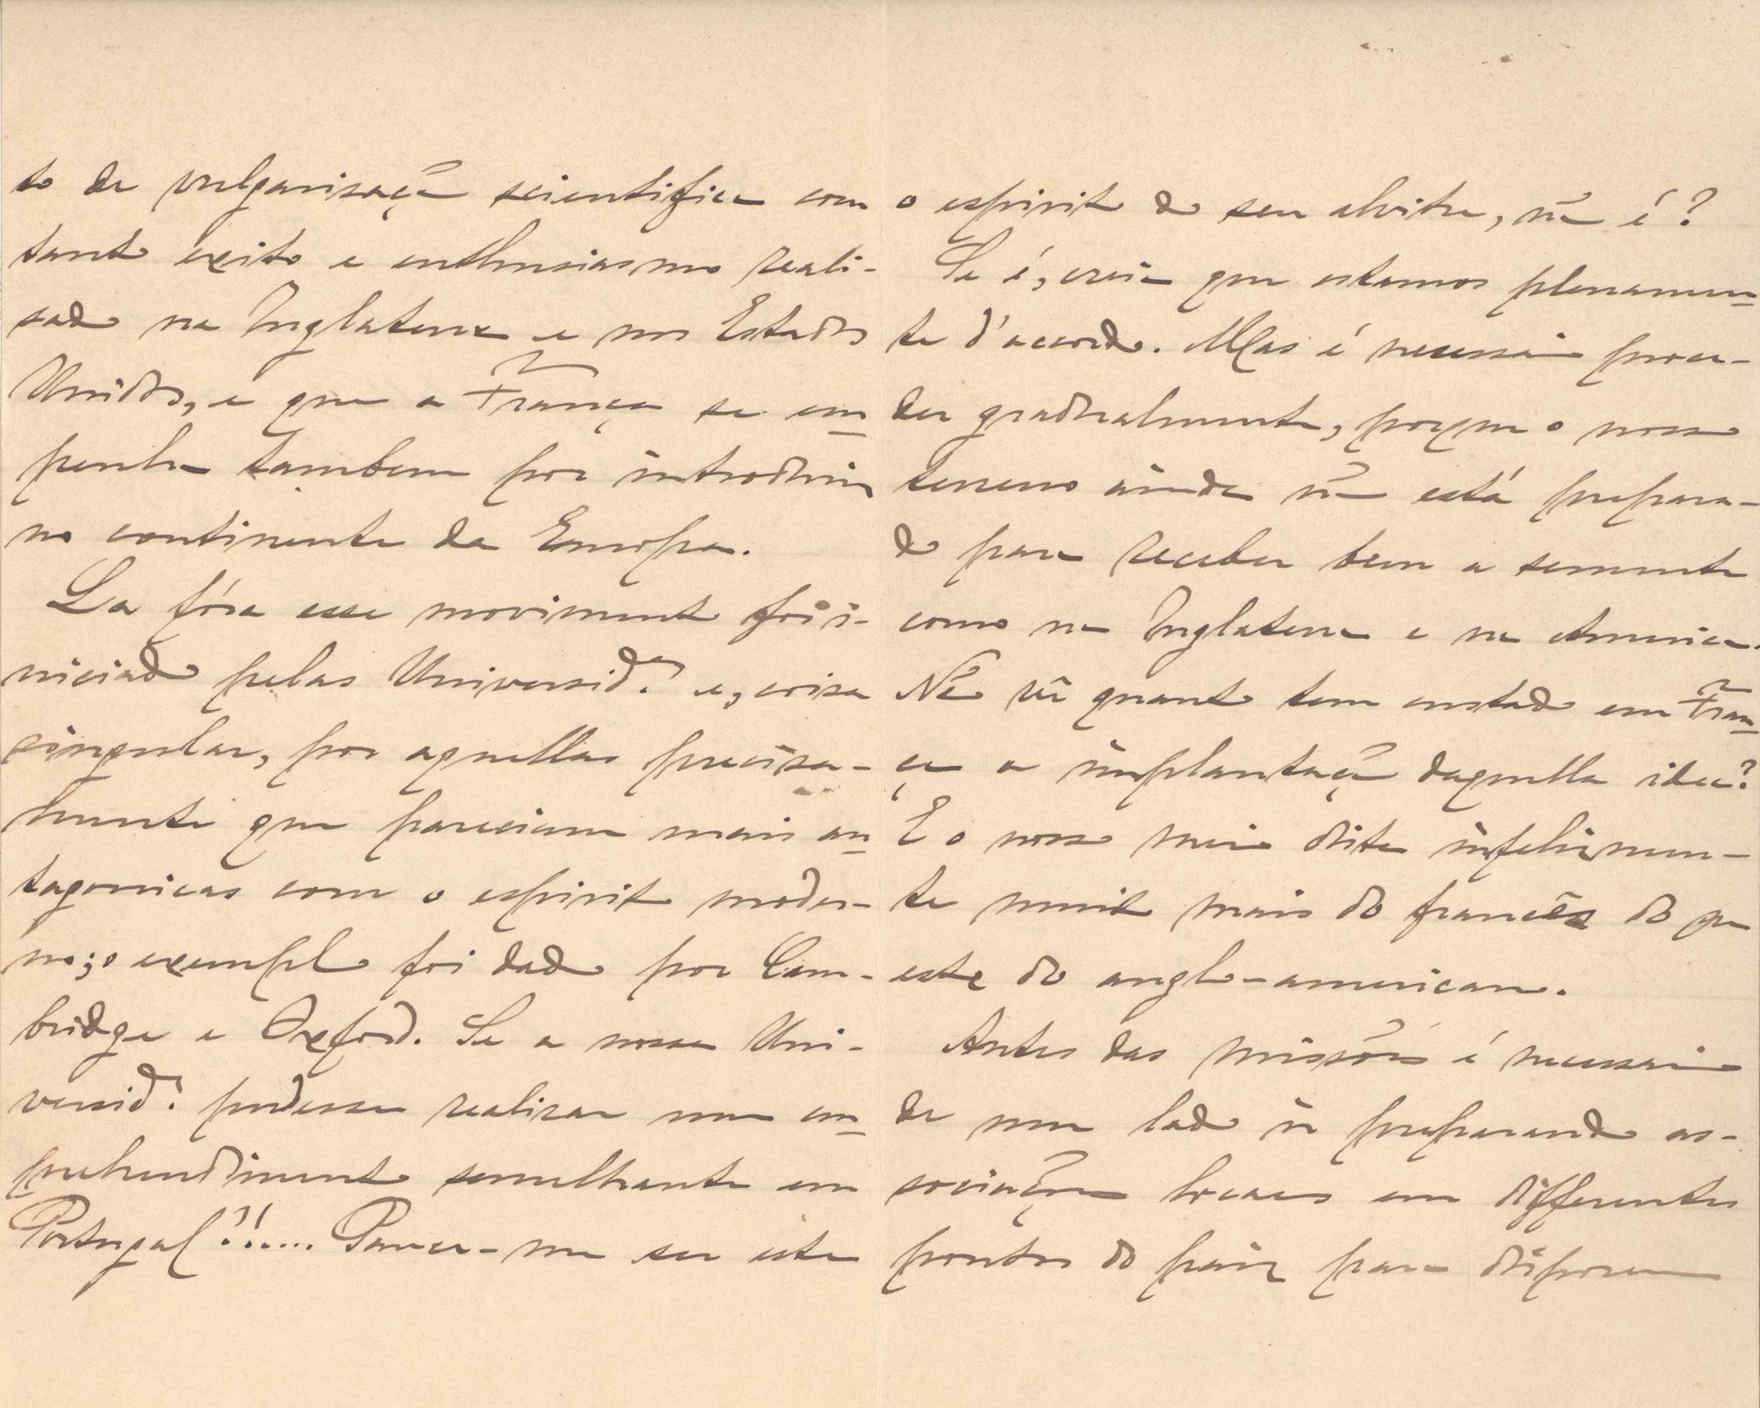 to de vulgarisação scientifica com
tanto exito e enthusiasmo reali-
sado na Inglaterra e nos Estados
Unidos, e que a França se em-
penha tambem por introduzir
no continente da Europa.
La fóra esse movimento foi i-
niciado pelas Universid.es e, coisa
singular, por aquellas precisa-
mente que pareciam mais an-
tagonicas com o espirito moder-
no; o exemplo foi dado por Cam-
bridge e Oxford. Se a nossa Uni-
versid.e podesse realisar um em-
prehendimento semelhante em
Portugal?!..... Parece-me ser este
o espirito do seu alvitre, não é?
Se é, creia que estamos plenamen-
te d'acordo. Mas é necessario proce-
der gradualmente, porque o nosso
terreno ainda não está prepara-
do para receber bem a semente
como na Inglaterra e na America.
Não vê quanto tem custado em Fran-
ça a implantação daquella idea?
E o nosso meio dista infelizmen-
te muito mais do francês do que
este do anglo-americano.
Antes das missões é necessario
de um lado ir preparando as-
sociações locaes em differentes
pontos do paiz para disporem